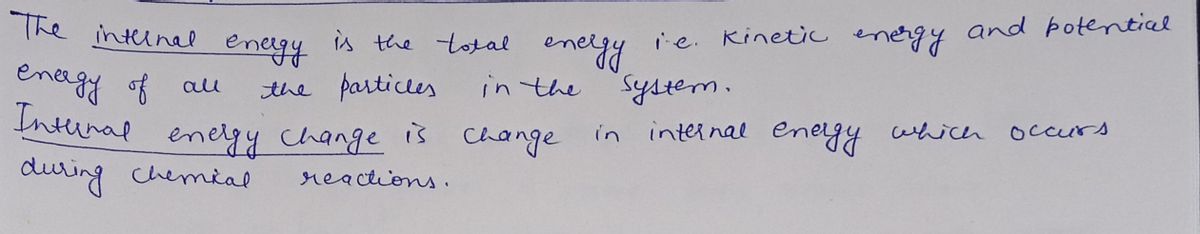 The internal energy is the total energy i.e. Kinetic energy and potential
energy of all the particles in the system.
Internal energy change is change in internal energy which occurs
during chemical reactions.